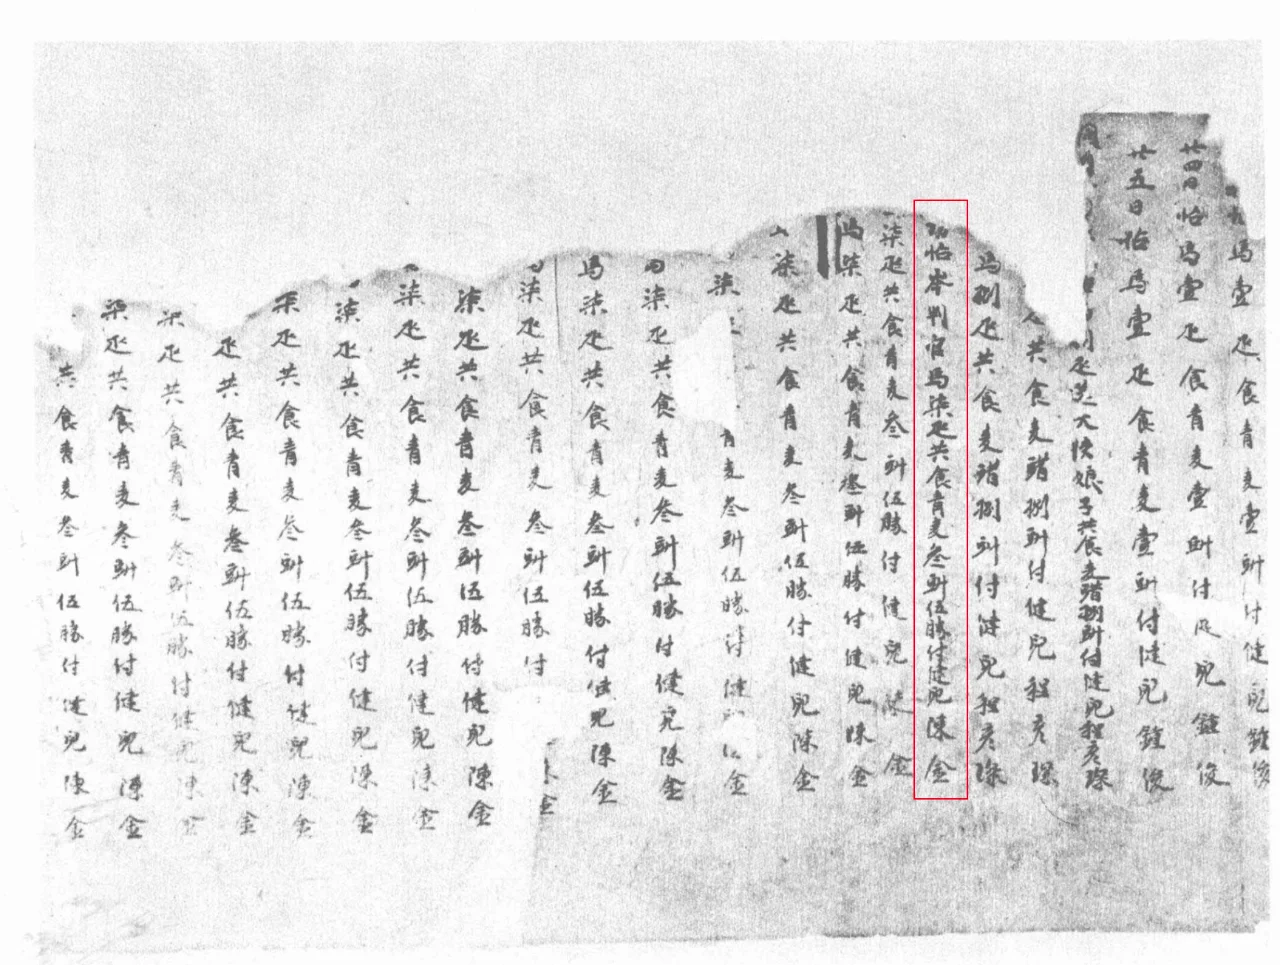 馬壹疋食青麦壹㪷付健兒鍾俊
廿四日帖馬壹疋食青麦壹㪷付健兒鍾俊
廿五日帖馬壹疋食青麦壹㪷付健兒鍾俊
疋送大夫娘子共食麦䜺捌㪷付健兒程彦琛
共食麦䜺捌㪷付健兒程彦琛
馬捌疋共食麦䜺捌㪷付健兒程彦琛
坊帖岑判官馬柒疋共食青麦叁㪷伍勝付健兒陳金
柒疋共食青麦叁㪷伍勝付健兒陳金
馬柒疋共食青麦叁㪷伍勝付健兒陳金
柒疋共食青麦叁㪷伍勝付健兒陳金
柒青麦叁㪷伍勝付健金
柒疋共食青麦叁㪷伍勝付健兒陳金
馬柒疋共食青麦叁㪷伍勝付健兒陳金
柒疋共食青麦叁㪷伍勝付金
柒疋共食青麦叁㪷伍勝付健兒陳金
柒疋共食青麦叁㪷伍勝付健兒陳金
柒疋共食青麦叁㪷伍勝付健兒陳金
柒疋共食青麦叁㪷伍勝付健兒陳金
疋共食青麦叁㪷伍勝付健兒陳金
柒疋共食青麦叁㪷伍勝付健兒陳金
柒疋共食青麦叁㪷伍勝付健兒陳金
共食青麦叁㪷伍勝付健兒陳金